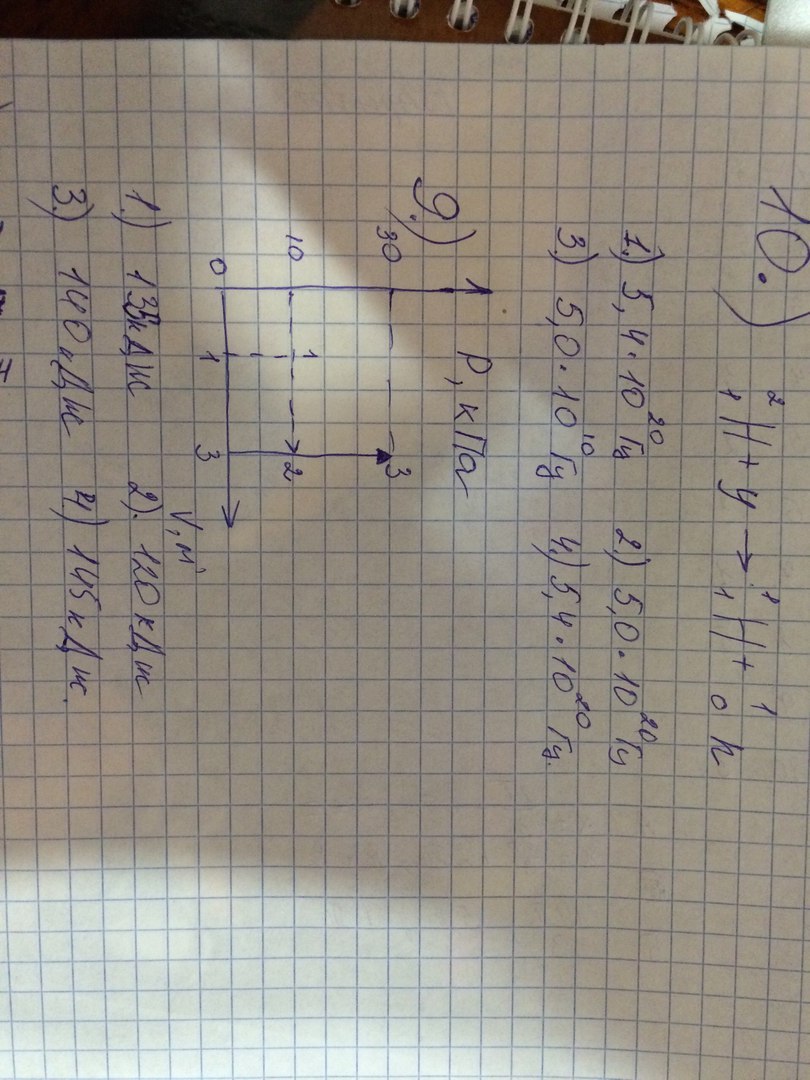 10.) ²₁H + γ → ¹₁H + ¹₀n
1.) 5,4·10²⁰ Гц 2.) 5,0·10²⁰ Гц
3.) 5,0·10¹⁰ Гц 4.) 5,4·10²⁰ Гц.
9.)
P, кПа
30 3
10 1 2
0 1 3
V, м³
1.) 135кДж 2). 120кДж
3.) 140кДж 4) 145кДж.